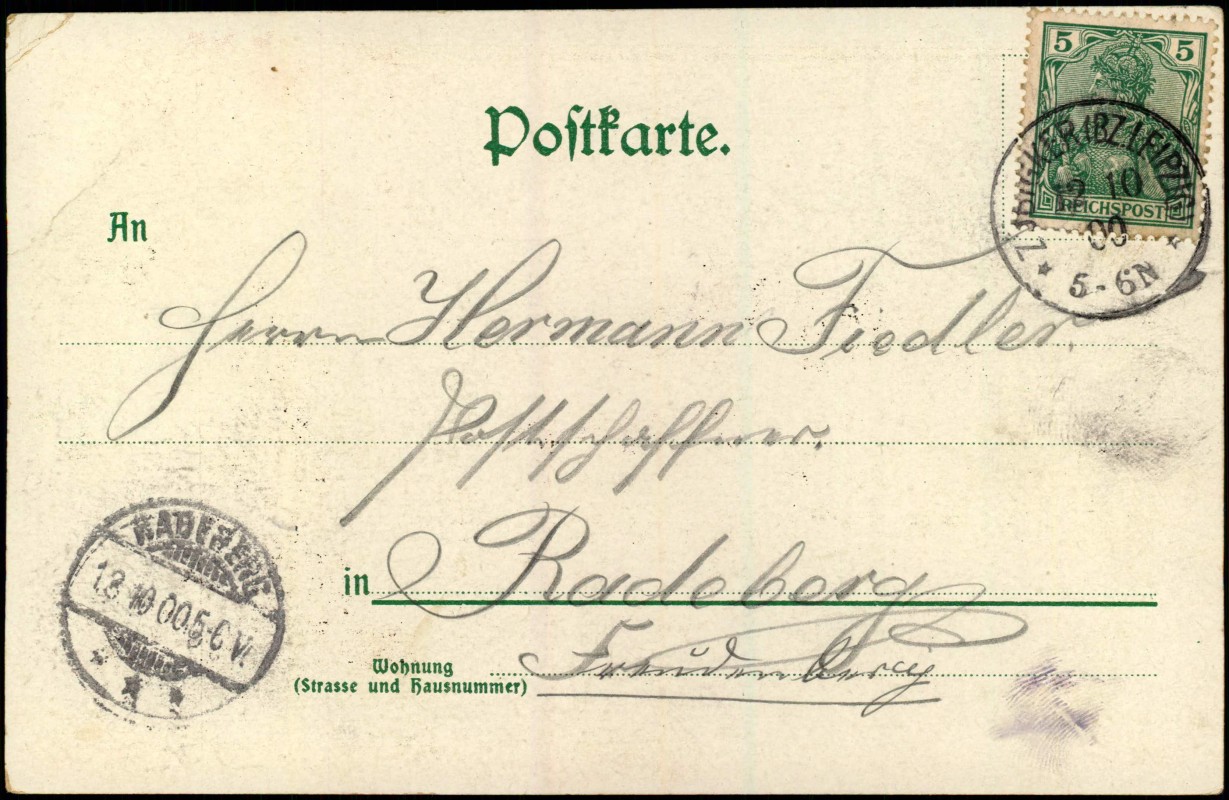 Postkarte.
5 5
REICHSPOST
ZWENKAU (BZ. LEIPZIG)
12 10
00
5-6N
An
Herrn Hermann Fiedler.
Postschaffner.
in Radeberg
Wohnung
(Strasse und Hausnummer)
Freudenberg
RADEBERG
13 10 00 5-6 V.